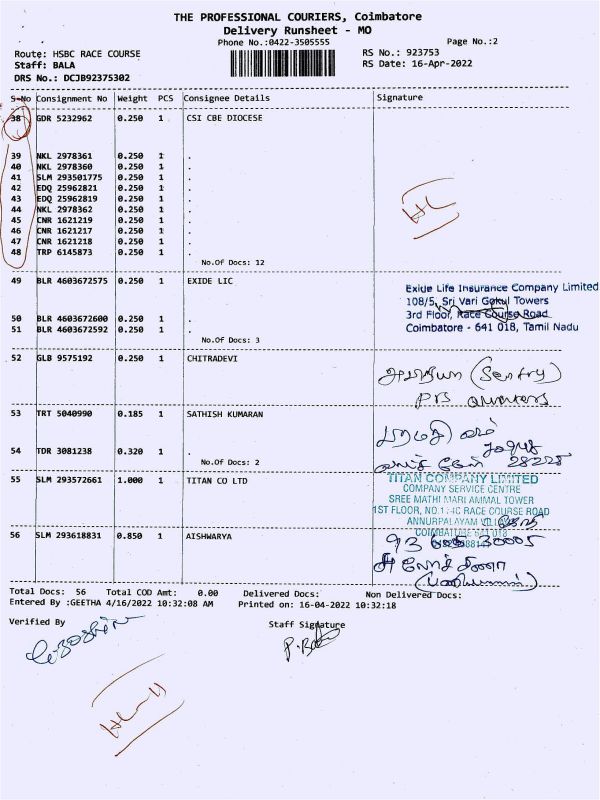 THE PROFESSIONAL COURIERS, Coimbatore
Delivery Runsheet - MO
Phone No.:0422-3505555
Page No.:2
Route: HSBC RACE COURSE
RS No.: 923753
Staff: BALA
RS Date: 16-Apr-2022
DRS No.: DCJB92375302
S-No Consignment No Weight PCS Consignee Details Signature
38 GDR 5232962 0.250 1 CSI CBE DIOCESE
39 NKL 2978361 0.250 1 .
40 NKL 2978360 0.250 1 .
41 SLM 293501775 0.250 1 .
42 EDQ 25962821 0.250 1 .
43 EDQ 25962819 0.250 1 .
44 NKL 2978362 0.250 1 .
45 CNR 1621219 0.250 1 .
46 CNR 1621217 0.250 1 .
47 CNR 1621218 0.250 1 .
48 TRP 6145873 0.250 1 .
No.Of Docs: 12
49 BLR 4603672575 0.250 1 EXIDE LIC
Exide Life Insurance Company Limited
108/5, Sri Vari Gokul Towers
3rd Floor, Race Course Road
Coimbatore - 641 018, Tamil Nadu
50 BLR 4603672600 0.250 1 .
51 BLR 4603672592 0.250 1 .
No.Of Docs: 3
52 GLB 9575192 0.250 1 CHITRADEVI
(Sentry)
PRS Quarters
53 TRT 5040990 0.185 1 SATHISH KUMARAN
54 TDR 3081238 0.320 1 .
No.Of Docs: 2
55 SLM 293572661 1.000 1 TITAN CO LTD
TITAN COMPANY LIMITED
COMPANY SERVICE CENTRE
SREE MATHI MARIAMMAL TOWER
1ST FLOOR, RACE COURSE ROAD
ANNURPALAYAM
COIMBATORE 641 018
56 SLM 293618831 0.850 1 AISHWARYA
Total Docs: 56 Total COD Amt: 0.00 Delivered Docs: Non Delivered Docs:
Entered By :GEETHA 4/16/2022 10:32:08 AM Printed on: 16-04-2022 10:32:18
Verified By
Staff Signature